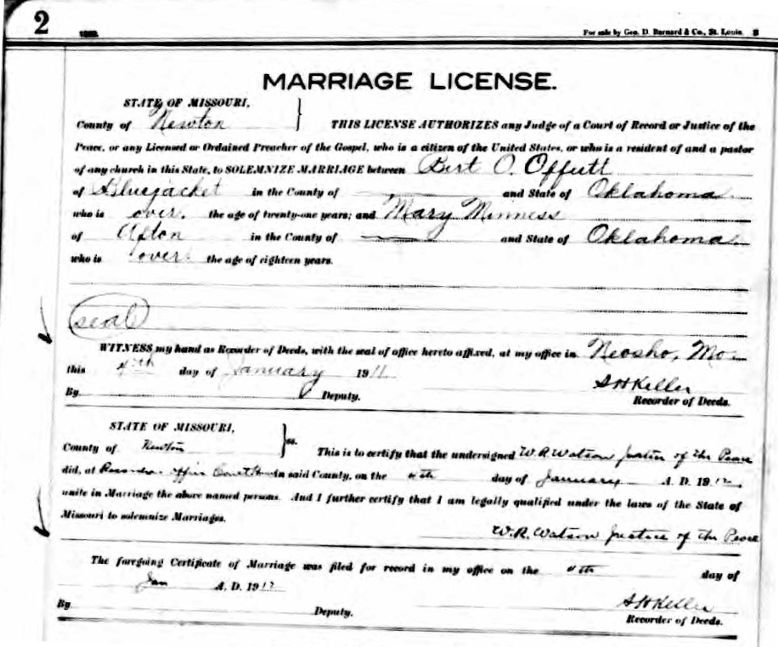 2 For sale by Geo. D. Barnard & Co., St. Louis
MARRIAGE LICENSE.
STATE OF MISSOURI,
County of Newton } THIS LICENSE AUTHORIZES any Judge of a Court of Record or Justice of the
Peace, or any Licensed or Ordained Preacher of the Gospel, who is a citizen of the United States, or who is a resident of and a pastor
of any church in this State, to SOLEMNIZE MARRIAGE between Bert O. Offutt
of Bluejacket in the County of and State of Oklahoma
who is over the age of twenty-one years; and Mary Minness
of Afton in the County of and State of Oklahoma
who is over the age of eighteen years.
seal
WITNESS my hand as Recorder of Deeds, with the seal of office hereto affixed, at my office in Neosho, Mo.
this 4th day of January 1911
S H Keller
By Deputy. Recorder of Deeds.
STATE OF MISSOURI,
County of Newton } ss. This is to certify that the undersigned W.R. Watson Justice of the Peace
did, at Recorders office Court House in said County, on the 4th day of January A. D. 1912
unite in Marriage the above named persons. And I further certify that I am legally qualified under the laws of the State of
Missouri to solemnize Marriages.
W.R. Watson Justice of the Peace
The foregoing Certificate of Marriage was filed for record in my office on the 4th day of
Jan A. D. 1912
S H Keller
By Deputy. Recorder of Deeds.